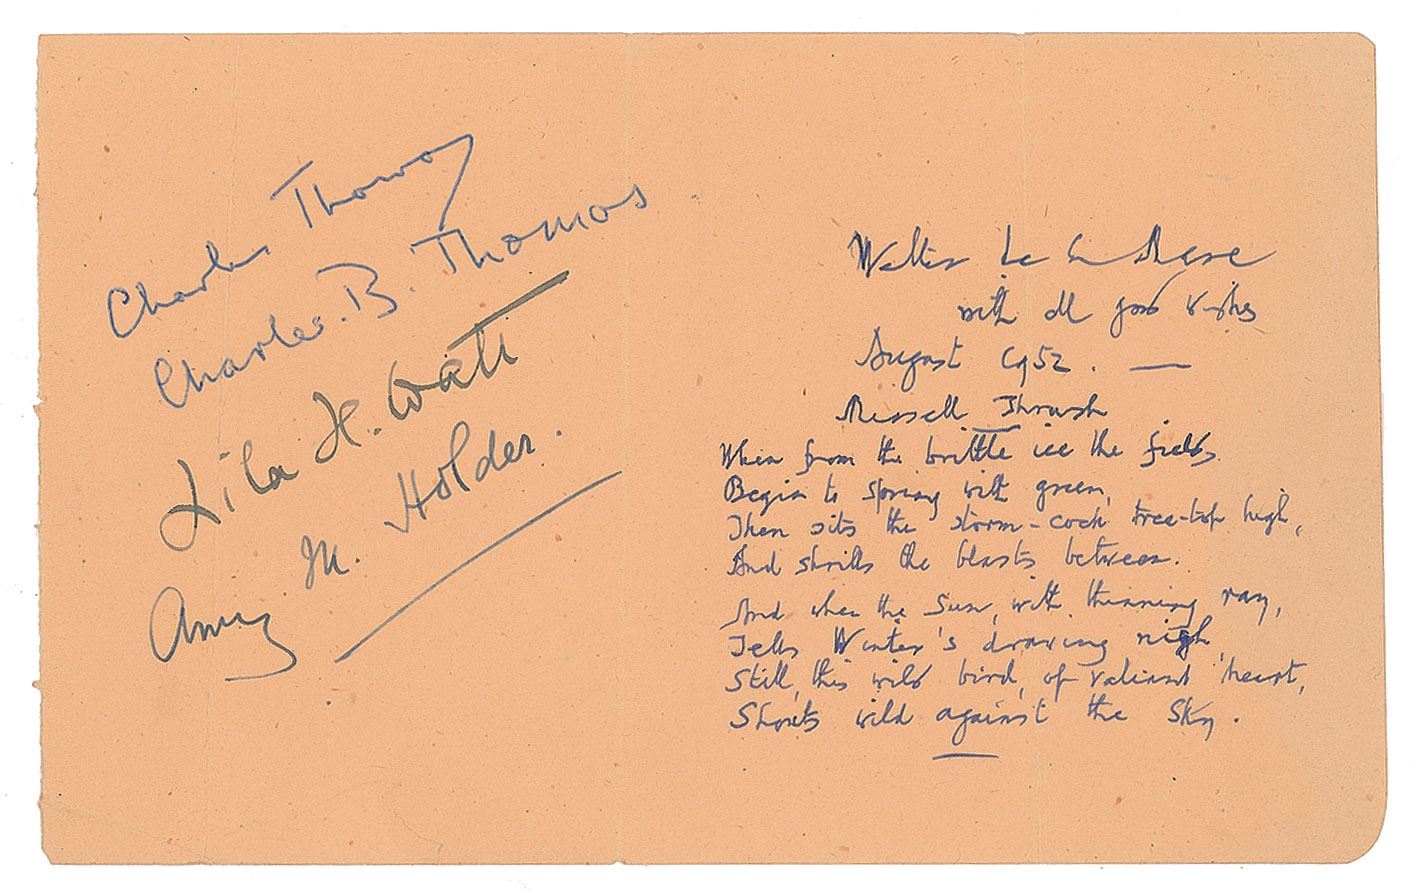 Charles Thomas
Charles. B. Thomas
Lila H. Watt
Amy M. Holder.
Walter de la Mare
with all good wishes
August 1952. —
Missell Thrush
When from the brittle ice the fields
Begin to spring with green,
Then sits the storm-cock tree-top high,
And shrills the blasts between.
And when the Sun, with thinning ray,
Tells Winter's drawing nigh,
Still, this wild bird, of valiant heart,
Shouts wild against the Sky.